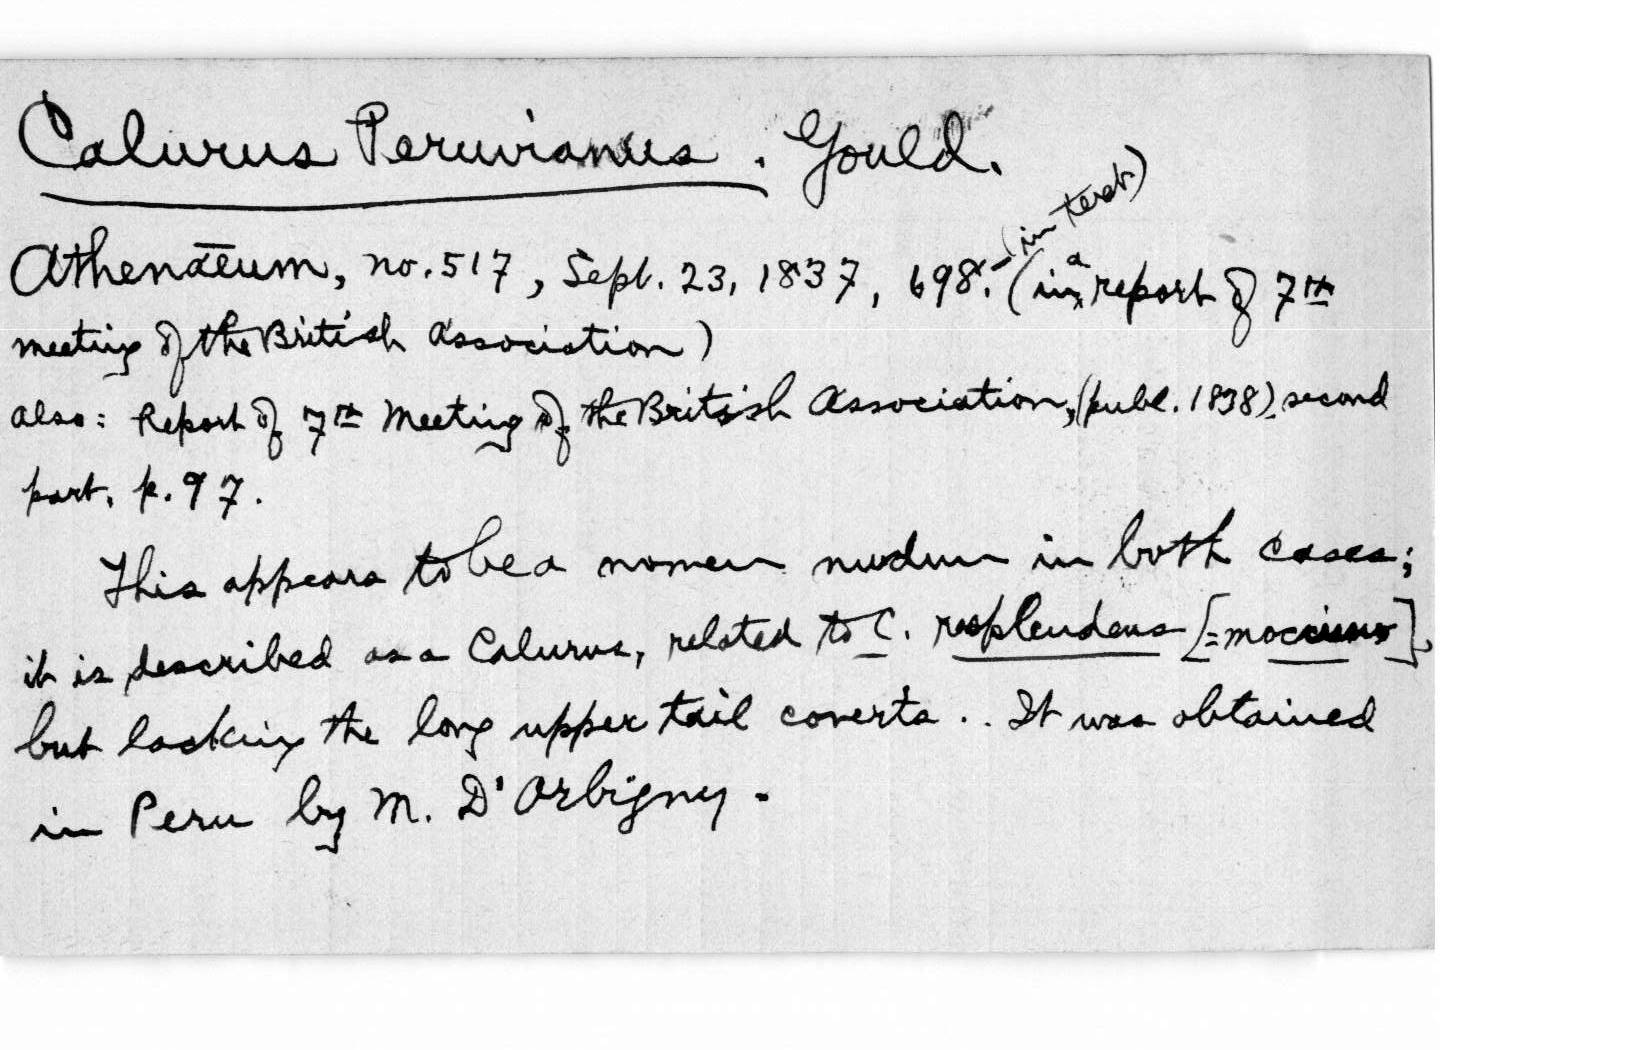 Calurus Peruvianus. Gould.
Athenaeum, no. 517, Sept. 23, 1837, 698. (in text) (in a report of 7th
meeting of the British Association)
Also: Report of 7th Meeting of the British Association, (publ. 1838), second
part, p. 97.
This appears to be a nomen nudum in both cases;
it is described as a Calurus, related to C. resplendens [=mocinno],
but lacking the long upper tail coverts.. It was obtained
in Peru by M. D'Orbigny.